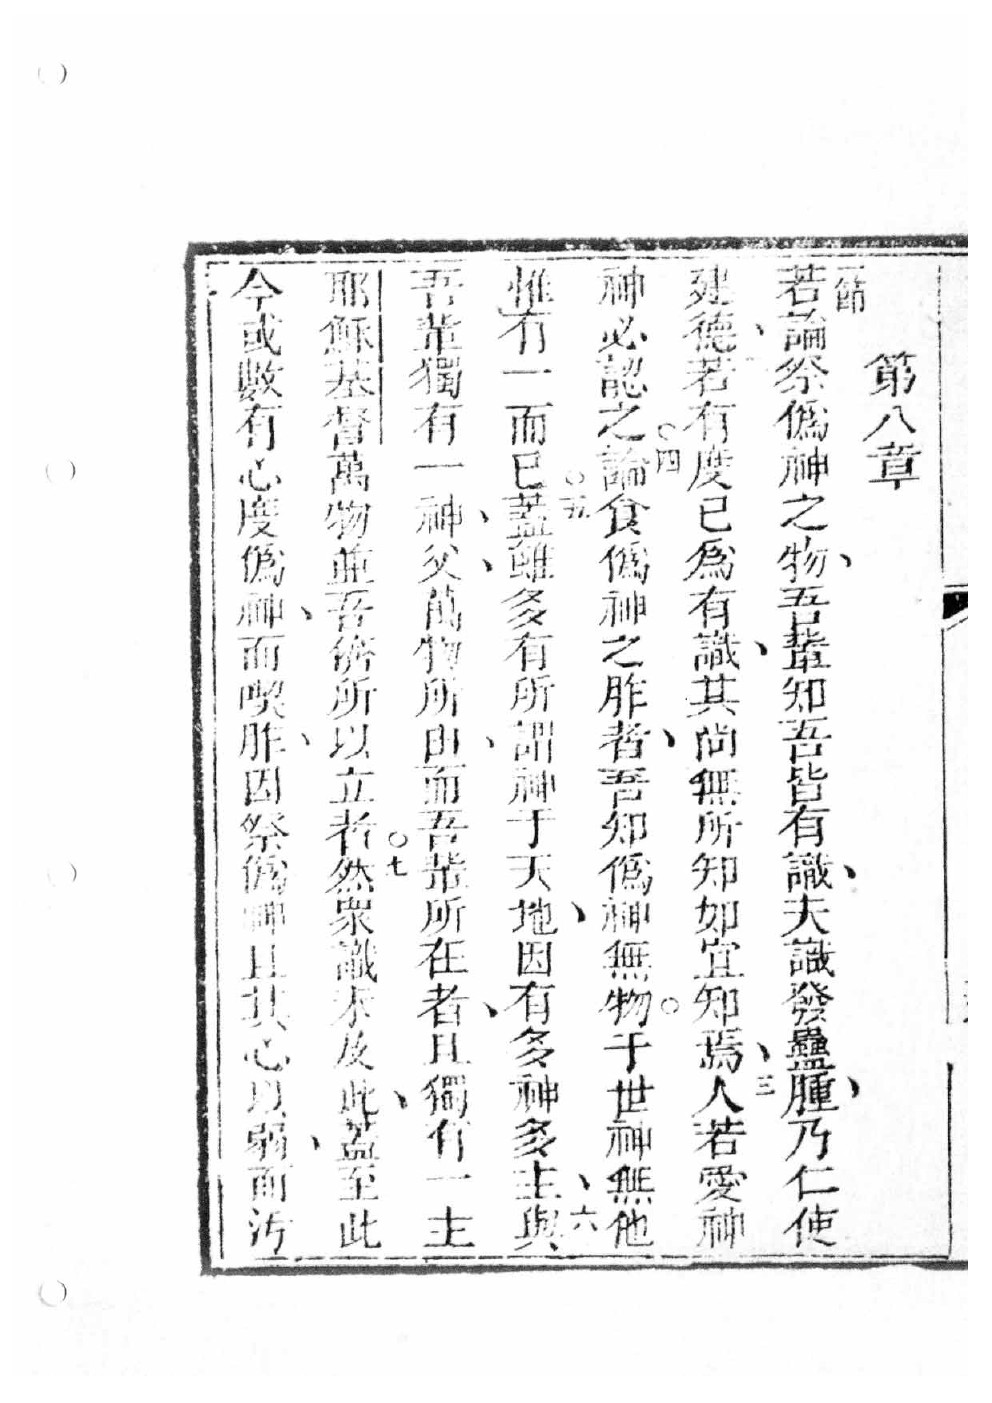 第八章
一節
若論祭僞神之物、吾輩知吾皆有識、夫識發蠱腫、乃仁使
建德、若有度已爲有識、其尚無所知如宜知焉、三人若愛神
神必認之○四論食僞神之胙者、吾知僞神無物○于世神無他
惟有一而已○五蓋雖多有所謂神于天地、因有多神多主、六與
吾輩獨有一神、父、萬物所由、而吾輩所在者、且獨有一主
耶穌基督萬物並吾儕所以立者○七然衆識未及此、蓋至此
今或數有心度僞神、而喫胙、因祭僞神且其心以弱、而汚